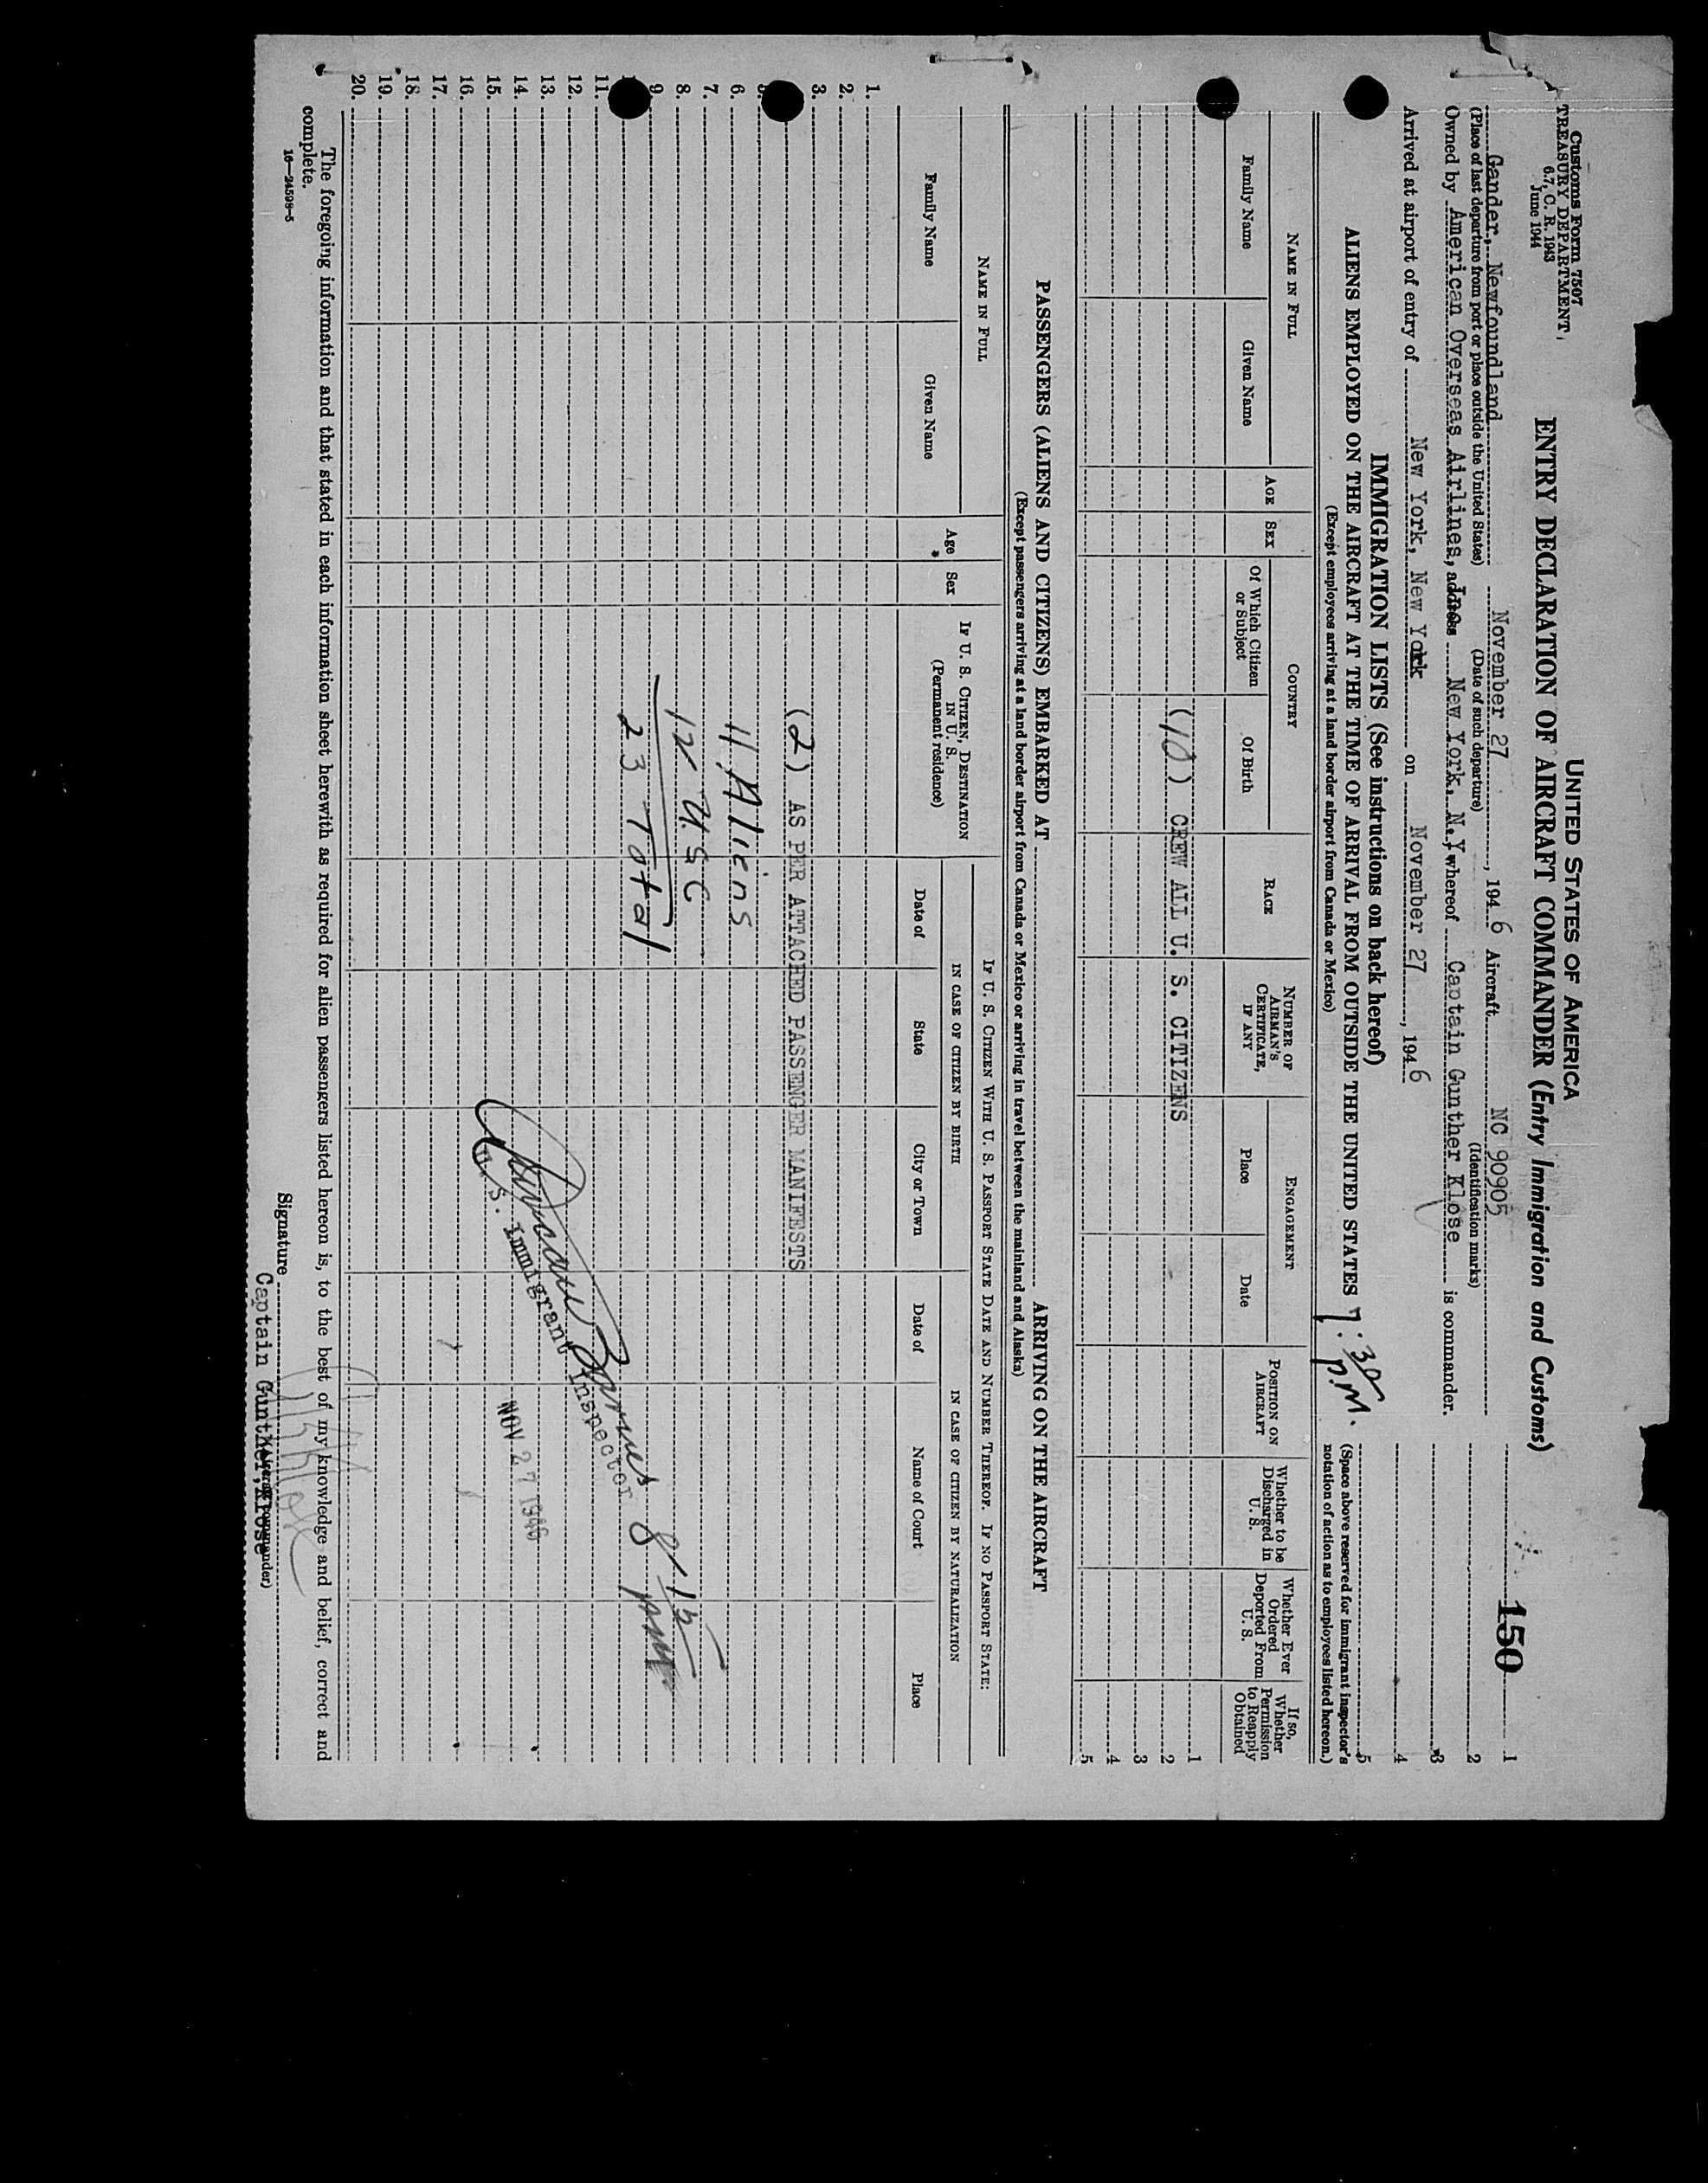 Customs Form 7507
TREASURY DEPARTMENT
6.7, C. R. 1943
June 1944
UNITED STATES OF AMERICA
ENTRY DECLARATION OF AIRCRAFT COMMANDER (Entry Immigration and Customs)
150 1
2
3
4
5
Gander, Newfoundland November 27, 1946 Aircraft NC 90905
(Place of last departure from port or place outside the United States) (Date of such departure) (Identification marks)
Owned by American Overseas Airlines, Inc. address New York, N.Y. whereof Captain Gunther Klose is commander.
Arrived at airport of entry of New York, New York on November 27, 1946
IMMIGRATION LISTS (See instructions on back hereof)
7:30 P.M.
(Space above reserved for immigrant inspector's notation of action as to employees listed hereon.)
ALIENS EMPLOYED ON THE AIRCRAFT AT THE TIME OF ARRIVAL FROM OUTSIDE THE UNITED STATES
(Except employees arriving at a land border airport from Canada or Mexico)
NAME IN FULL
Family Name Given Name
AGE SEX
COUNTRY
Of Which Citizen or Subject Of Birth
RACE
NUMBER OF AIRMAN'S CERTIFICATE, IF ANY
ENGAGEMENT
Place Date
POSITION ON AIRCRAFT
Whether to be Discharged in U. S.
Whether Ever Ordered Deported From U. S.
If so, Whether Permission to Reapply Obtained
1
(10) CREW ALL U. S. CITIZENS 2
3
4
5
PASSENGERS (ALIENS AND CITIZENS) EMBARKED AT ARRIVING ON THE AIRCRAFT
(Except passengers arriving at a land border airport from Canada or Mexico or arriving in travel between the mainland and Alaska)
NAME IN FULL
Family Name Given Name
Age Sex
IF U. S. CITIZEN, DESTINATION IN U. S.
(Permanent residence)
IF U. S. CITIZEN WITH U. S. PASSPORT STATE DATE AND NUMBER THEREOF. IF NO PASSPORT STATE:
IN CASE OF CITIZEN BY BIRTH IN CASE OF CITIZEN BY NATURALIZATION
Date of State City or Town Date of Name of Court Place
1.
2.
3.
(2) AS PER ATTACHED PASSENGER MANIFESTS
5.
6. 11 Aliens
7.
8. 12 USC
9.
23 Total
11.
12.
13.
14.
15.
16.
17.
18.
19.
20.
Barnes 8 15 pm
U. S. Immigrant Inspector
NOV 27 1946
The foregoing information and that stated in each information sheet herewith as required for alien passengers listed hereon is, to the best of my knowledge and belief, correct and
complete.
16—24598-5
Signature
(Aircraft commander)
Captain Gunther Klose